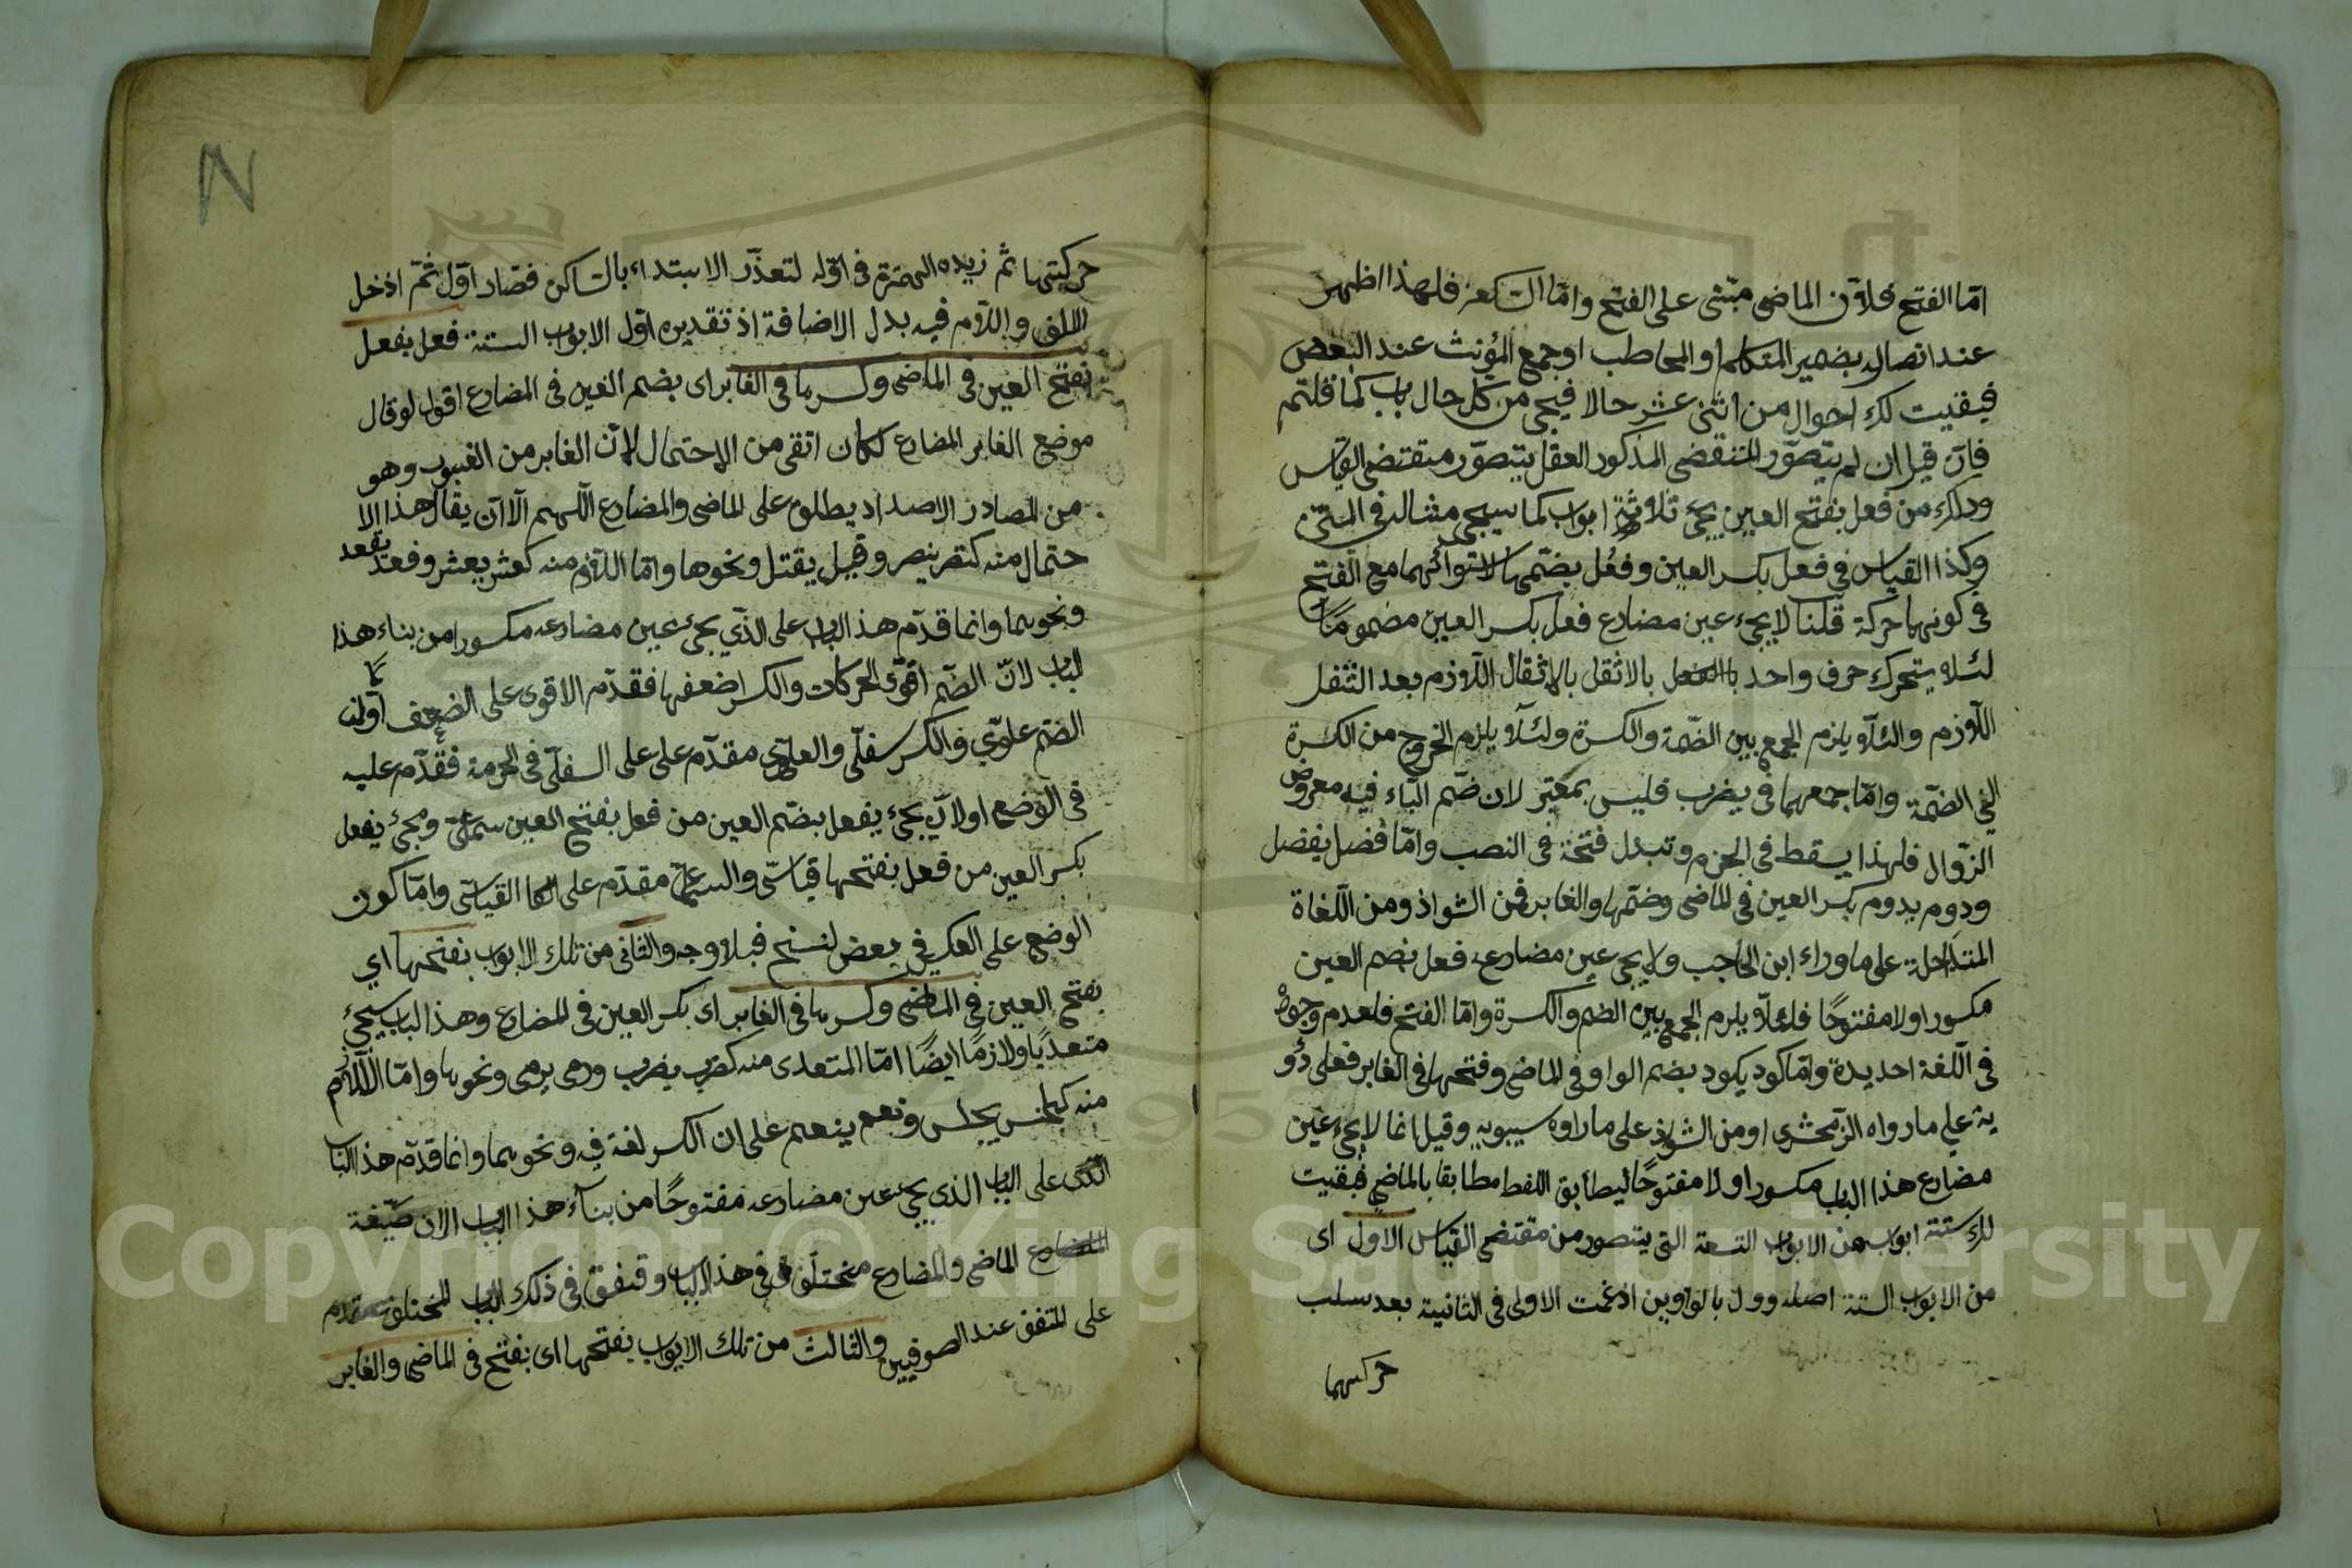 امّا الفتح فلانّ الماضى مبنى على الفتح وامّا السكون فلهذا اظهر
عند اتصاله بضمير المتكلم او المخاطب او جمع المؤنث عند البعض
فبقيت لك احوال من اثنى عشر حالا فيجى من كل حال باب كما قلتم
فان قيل ان لم يتصوّر المنقضى المذكور العقل يتصوّر مقتضى القياس
وذلك من فعل بفتح العين يجئ ثلاثة ابواب كما سيجى مثاله فى المتن
وكذا القياس فى فعل بكسر العين وفعُل بضمّها لاستوائهما مع الفتح
فى كونهما حركة قلنا لا يجىء عين مضارع فعل بكسر العين مضموما
لئلا يتحرك حرف واحد بالاثقل بالاثقال اللازم بعد الثقل
اللازم والئلاّ يلزم الجمع بين الضّمة والكسرة ولئلاّ يلزم الخروج من الكسرة
الى الضمّة وامّا جمعهما فى يضرب فليس بمعتبر لان ضّم الباء فيه معروض
الزوال فلهذا يسقط فى الجزم وتبدل فتحة فى النصب وامّا فضل يفضل
ودوم يدوم بكسر العين فى الماضى وضمّها والغابر فمن الشواذ ومن اللّغاة
المتداخلة على ماوراء ابن الحاجب ولا يجى عين مضارع فعل بضم العين
مكسورا ولا مفتوحًا فلئلاّ يلزم الجمع بين الضم والكسرة وامّا الفتح فلعدم وجوده
فى اللّغة احديدة وامّا كود يكود بضم الواو فى الماضى وفتحها فى الغابر فعلى دؤو
ية على ما رواه الزمحشرى او من الشواذ على ما راوه سيبويه وقيل انما لا يجىء عين
مضارع هذا الباب مكسورا ولا مفتوحًا ليطابق اللفظ مطابقا بالماضى فبقيت
لك ستة ابواب من الابواب التسعة التى يتصور من مقتضى القياس الاول اى
من الابواب الستة اصله وول بالواوين ادغمت الاولى فى الثانية بعد سلب
حركتهما
حركيتها ثم زيده الهمزة فى اوّله لتعذّر الابتداء بالساكن فصار اوّل ثمّ ادخل
الالف واللاّم فيه بدل الاضافة اذ تقديره اوّل الابواب الستة فعل يفعل
بفتح العين فى الماضى وكسرها فى الغابر اى بضم العين فى المضارع اقول لو قال
موضع الغابر المضارع لكان اتقى من الاحتمال لانّ الغابر من الغبور وهو
من المصادر الاصداد يطلق على الماضى والمضارع اللّهم الاّ ان يقال هذا الا
حتمال منه كنصر ينصر وقتل يقتل ونحوها وامّا اللازم منه كعشر يعشر وقعد يقعد
ونحوهما وانما قدّم هذ الباب على الذّى يجئ عين مضارعه مكسورا من بناء هذا
الباب لانّ الضّم اقوّى الحركات والكسر اضعفها فقدّم الاقوى على الضعف اولان
الضّم علوّي والكسر سفلّى والعلوّى مقدّم على على السفلّى فى الحرمة فقدّم عليه
فى الوضع اولان يجئ يفعل بضّم العين من فعل بفتح العين سماعىّ ومجئ يفعل
بكسر العين من فعل بفتحها قياسّى والسماعىّ مقدّم على القياسّى وامّا كون
الوضع على العكس فى بعض لنسخ فبلا وجه والثانى من تلك الابواب بفتحها اي
بفتح العين فى الماضى وكسرها فى الغابر اى بكسر العين فى المضارع وهذ الباب سيجئ
متعديًا ولازمًا ايضًا امّا المتعدى منه كضرب يضرب ورمى يرمى ونحوها وامّا اللازم
منه كجلس يجلس ونعم ينعم على ان الكسر لغة فيه ونحوهما وانما قدّم هذ الباب
الذى على الباب الذى يجئ عين مضارعه مفتوحًا من بناء هذا الباب الان صيّغة
الماضى والمضارع مختلف فى هذا الباب وقتفق فى ذلك الباب المختلف مقدم
على المتفق عند الصوفيين والثالث من تلك الابواب بفتحها اى بفتح فى الماضى والغابر
Copyright © King Saud University